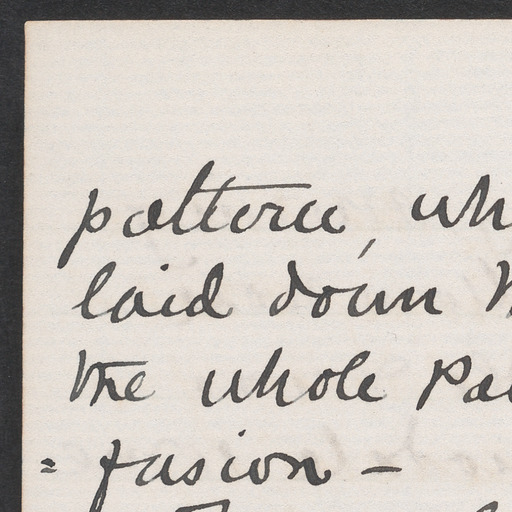 pattern, wh
laid down
the whole pa
= fusion –